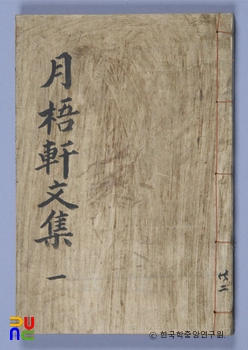 月梧軒文集 一
共二
© 한국학중앙연구원